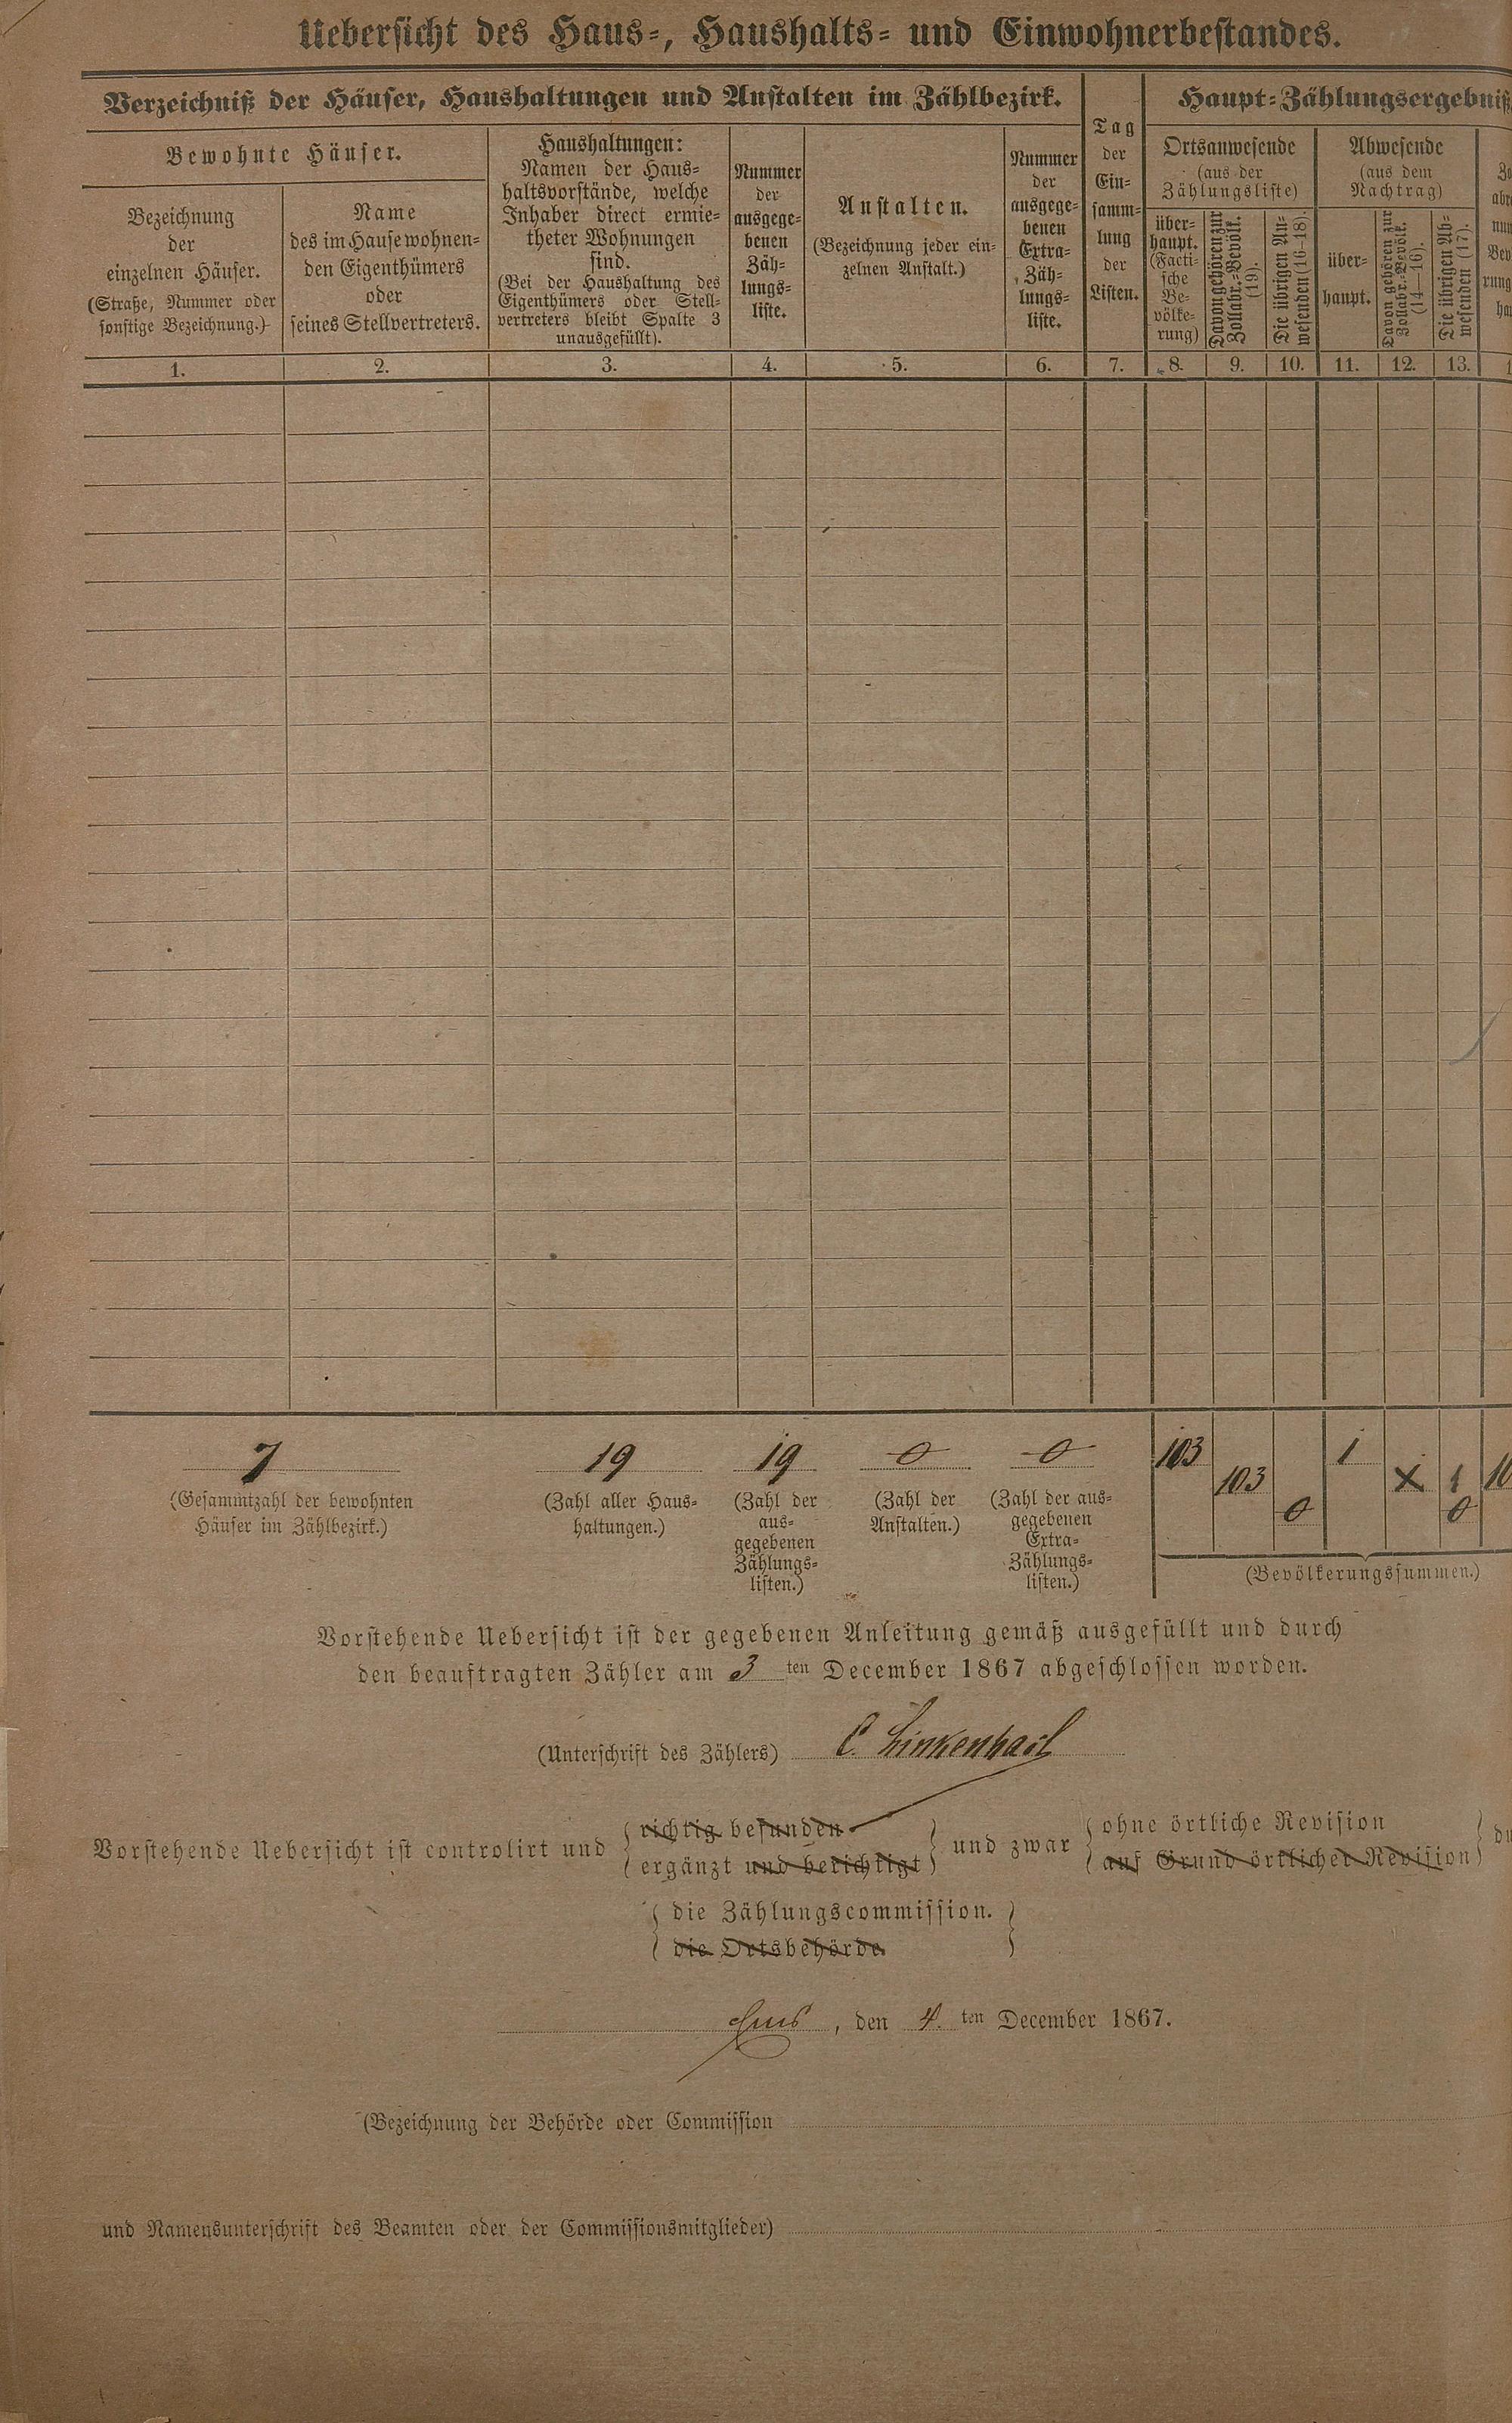 Uebersicht des Haus-, Haushalts- und Einwohnerbestandes.
Verzeichniß der Häuser, Haushaltungen und Anstalten im Zählbezirk.
Bewohnte Häuser.
Bezeichnung
der
einzelnen Häuser.
(Straße, Nummer oder
sonstige Bezeichnung.)
Name
des im Hause wohnen-
den Eigenthümers
oder
seines Stellvertreters.
Haushaltungen:
Namen der Haus-
haltsvorstände, welche
Inhaber direct ermie-
theter Wohnungen
sind.
(Bei der Haushaltung des
Eigenthümers oder Stell-
vertreters bleibt Spalte 3
unausgefüllt).
Nummer
der
ausgege-
benen
Zäh-
lungs-
liste.
Anstalten.
(Bezeichnung jeder ein-
zelnen Anstalt.)
Nummer
der
ausgege-
benen
Extra-
Zäh-
lungs-
liste.
Tag
der
Ein-
samm-
lung
der
Listen.
Haupt-Zählungsergebniß
Ortsanwesende
(aus der
Zählungsliste)
über-
haupt.
(Facti-
sche
Be-
völke-
rung)
Davon gehören zur
Zollabr.-Bevölk.
(19).
Die übrigen An-
wesenden (16-18).
Abwesende
(aus dem
Nachtrag)
über-
haupt.
Davon gehören zur
Zollabr.-Bevölk.
(14—16).
Die übrigen Ab-
wesenden (17).
1. 2. 3. 4. 5. 6. 7. 8. 9. 10. 11. 12. 13.
7 19 19 0 0 103 1
103 x 1
0 0
(Gesammtzahl der bewohnten
Häuser im Zählbezirk.)
(Zahl aller Haus-
haltungen.)
(Zahl der
aus-
gegebenen
Zählungs-
listen.)
(Zahl der
Anstalten.)
(Zahl der aus-
gegebenen
Extra-
Zählungs-
listen.)
(Bevölkerungssummen.)
Vorstehende Uebersicht ist der gegebenen Anleitung gemäß ausgefüllt und durch
den beauftragten Zähler am 3 ten December 1867 abgeschlossen worden.
(Unterschrift des Zählers) C. Linkenbach
Vorstehende Uebersicht ist controlirt und { richtig befunden } und zwar { ohne örtliche Revision }
{ ergänzt und berichtigt } { auf Grund örtlicher Revision }
{ die Zählungscommission. }
{ die Ortsbehörde }
Ems, den 4. ten December 1867.
(Bezeichnung der Behörde oder Commission
und Namensunterschrift des Beamten oder der Commissionsmitglieder)